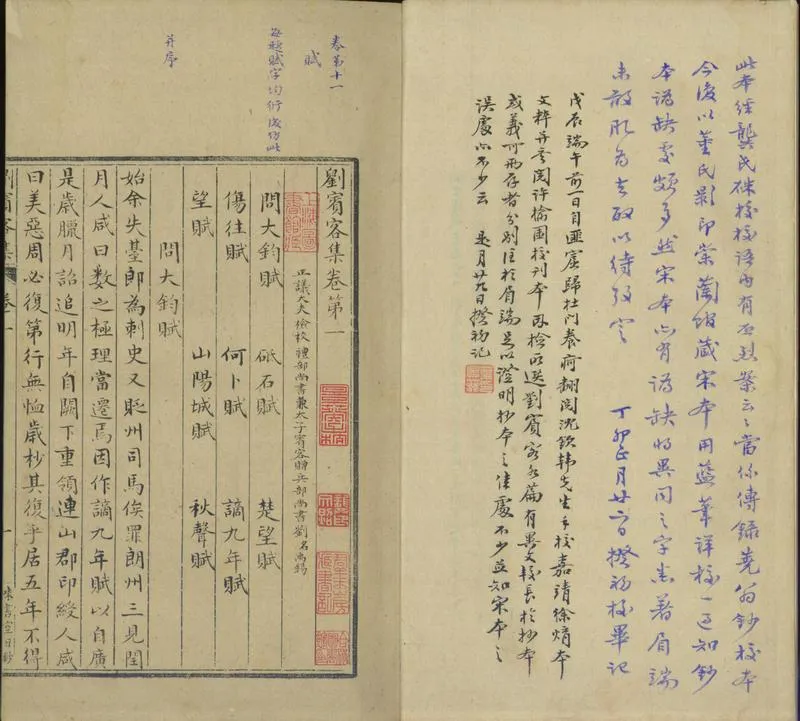 此本經龔氏硃校校語內有丕烈案云云當係傳錄蕘翁鈔校本
今復以董氏影印崇蘭館藏宋本用藍筆詳校一過知鈔
本譌缺處頗多然宋本亦有譌缺將異同之字悉著眉端
未敢肊為去取以待攷定 丁卯正月廿六日揆初校畢記
戊辰端午前一日自匡廬歸杜門養疴翻閱沈欽韓先生手校嘉靖徐焴本
文粹并參閱許榆園校刊本取檢所選劉賓客各篇有異文較長於抄本
或義可兩存者分別注於眉端足以證明抄本之佳處不少並知宋本之
誤處亦不少云 是月廿九日揆初記
卷第十一
賦
每題賦字均衍後仿此
并序
劉賓客集卷第一
正議大夫檢校禮部尚書兼太子賓客贈兵部尚書劉名禹錫
問大鈞賦 砥石賦 楚望賦
傷往賦 何卜賦 謫九年賦
望賦 山陽城賦 秋聲賦
問大鈞賦
始余失臺郎為刺史又貶州司馬俟罪朗州三見閏
月人咸曰數之極理當遷焉因作謫九年賦以自廣
是歲臘月詔追明年自闕下重領連山郡印綬人咸
曰美惡周必復第行無恤歲杪其復乎居五年不得
劉賓客集 卷一